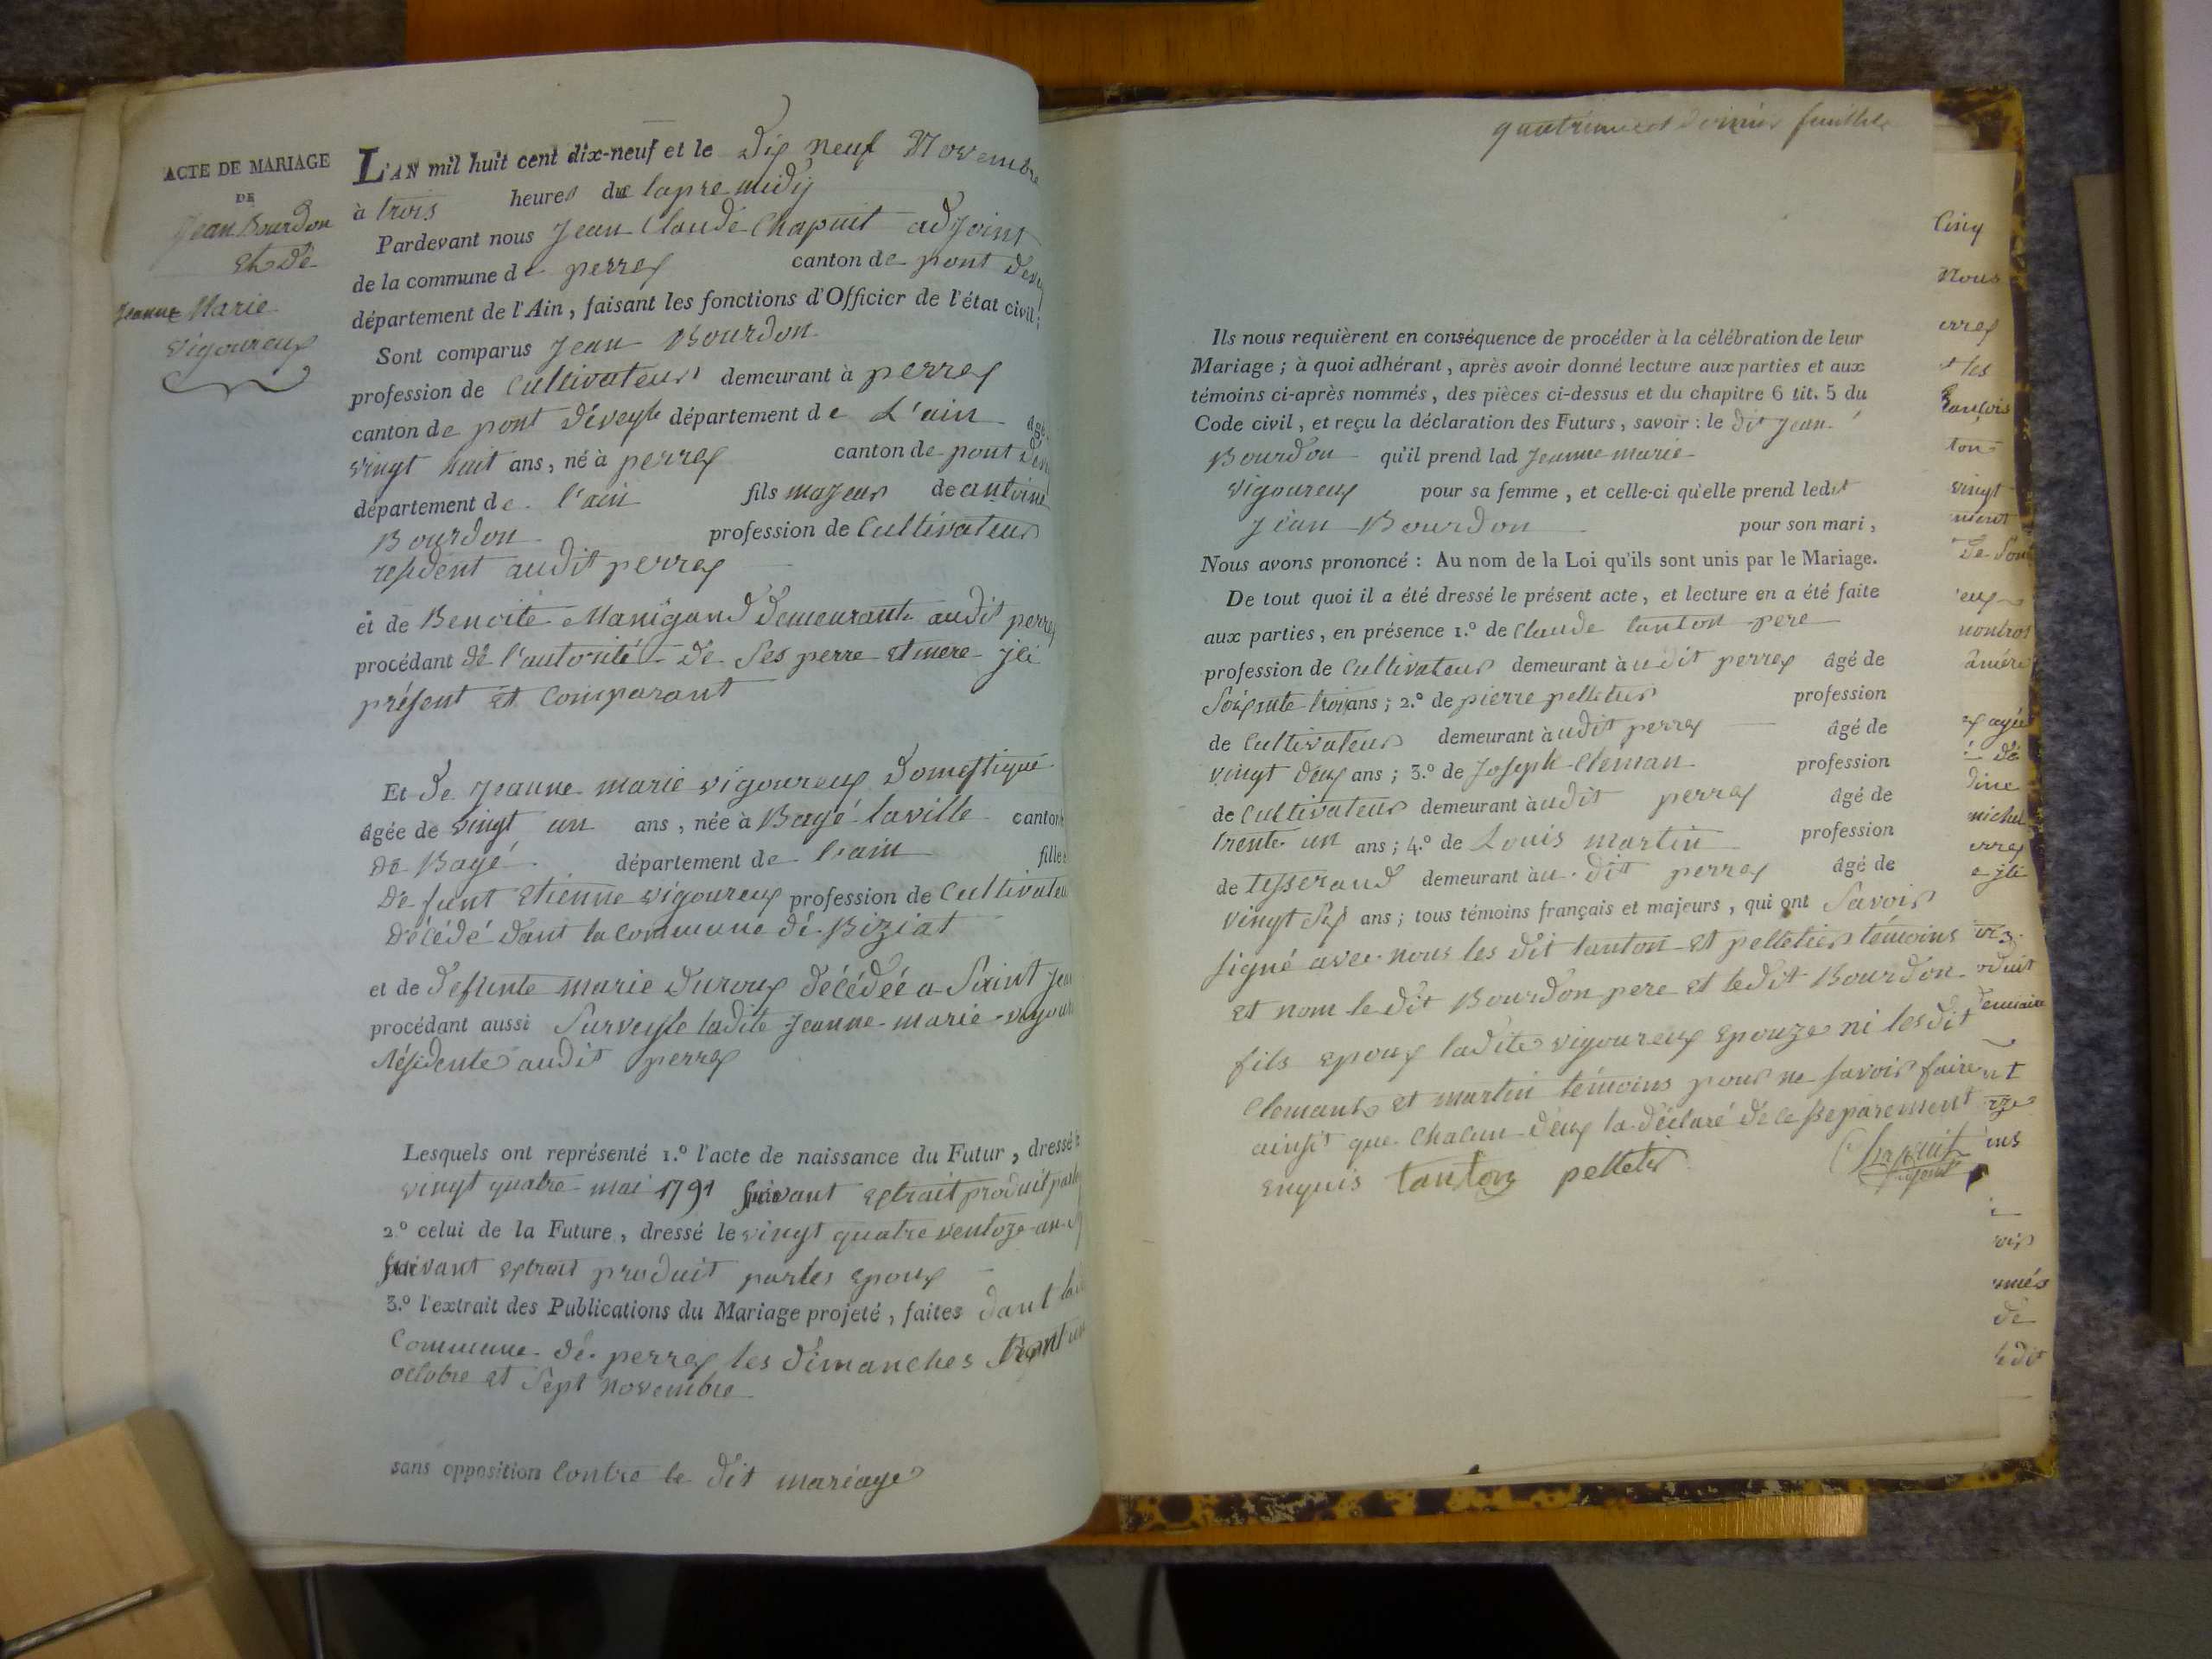 ACTE DE MARIAGE
DE
Jean Bourdon
Et De
Jeanne Marie
Vigoureux
L'AN mil huit cent dix-neuf et le Dix neuf Novembre
à trois heures du lapre midij
Pardevant nous Jean Claude Chapuit adjoint
de la commune de perrex canton de pont
département de l'Ain, faisant les fonctions d'Officier de l'état civil;
Sont comparus Jean Bourdon
profession de Cultivateur demeurant à perrex
canton de pont deveyle département de L'ain âgé
vingt huit ans, né à perrex canton de pont
département de l'ain fils majeur de antoine
Bourdon profession de Cultivateur
resident audit perrex
et de Benoite Manigand demeurante audit perrex
procédant de l'autorité De Ses perre et mere jci
présent Et Comparant
Et De Jeanne marie vigoureux Domestique
âgée de vingt un ans, née à Bagé laville canton
de Bagé département de l'ain fille
De funt Etienne vigoureux profession de Cultivateur
Décédé dant la Commune de Biziat
et de defunte marie Duroux décédée a Saint
procédant aussi Surveyle ladite Jeanne marie
Résidente audit perrex
Lesquels ont représenté 1.º l'acte de naissance du Futur, dressé
vingt quatre mai 1791 suivant Extrait produit
2.º celui de la Future, dressé le vingt quatre ventoze an
suivant Extrait produit par les Epoux
3.º l'extrait des Publications du Mariage projeté, faites dant
Commune de perrex les Dimanches
octobre Et Sept Novembre
sans opposition Contre le dit mariage
quatrieme et dernier feuillet
Ils nous requièrent en conséquence de procéder à la célébration de leur
Mariage; à quoi adhérant, après avoir donné lecture aux parties et aux
témoins ci-après nommés, des pièces ci-dessus et du chapitre 6 tit. 5 du
Code civil, et reçu la déclaration des Futurs, savoir: le dit Jean
Bourdon qu'il prend lad Jeanne marie
Vigoureux pour sa femme, et celle-ci qu'elle prend ledit
Jean Bourdon pour son mari,
Nous avons prononcé: Au nom de la Loi qu'ils sont unis par le Mariage.
De tout quoi il a été dressé le présent acte, et lecture en a été faite
aux parties, en présence 1.º de Claude tanton pere
profession de Cultivateur demeurant audit perrex âgé de
Soixente trois ans; 2.º de pierre pelletier profession
de Cultivateur demeurant audit perrex âgé de
vingt deux ans; 3.º de Joseph Cleman profession
de Cultivateur demeurant audit perrex âgé de
trente un ans; 4.º de Louis martin profession
de tisserand demeurant au dit perrex âgé de
vingt Six ans; tous témoins français et majeurs, qui ont Savoir
signé avec nous les dit tanton Et pelletier témoins
Et nom le dit Bourdon pere Et ledit Bourdon
fils Epoux ladite vigoureux Epouze ni les dit
Clemant Et martin témoins pour ne savoir faire
ainsit que Chacun deux la déclaré de ce Separement
Enquis tanton pelletier Chapuit
adjoint
Cinq
Nous
errex
et les
françois
ton
vingt
ment
De Son
eux
âgée
de
dine
michel
errex
jci
oduit
ins
de
ledit